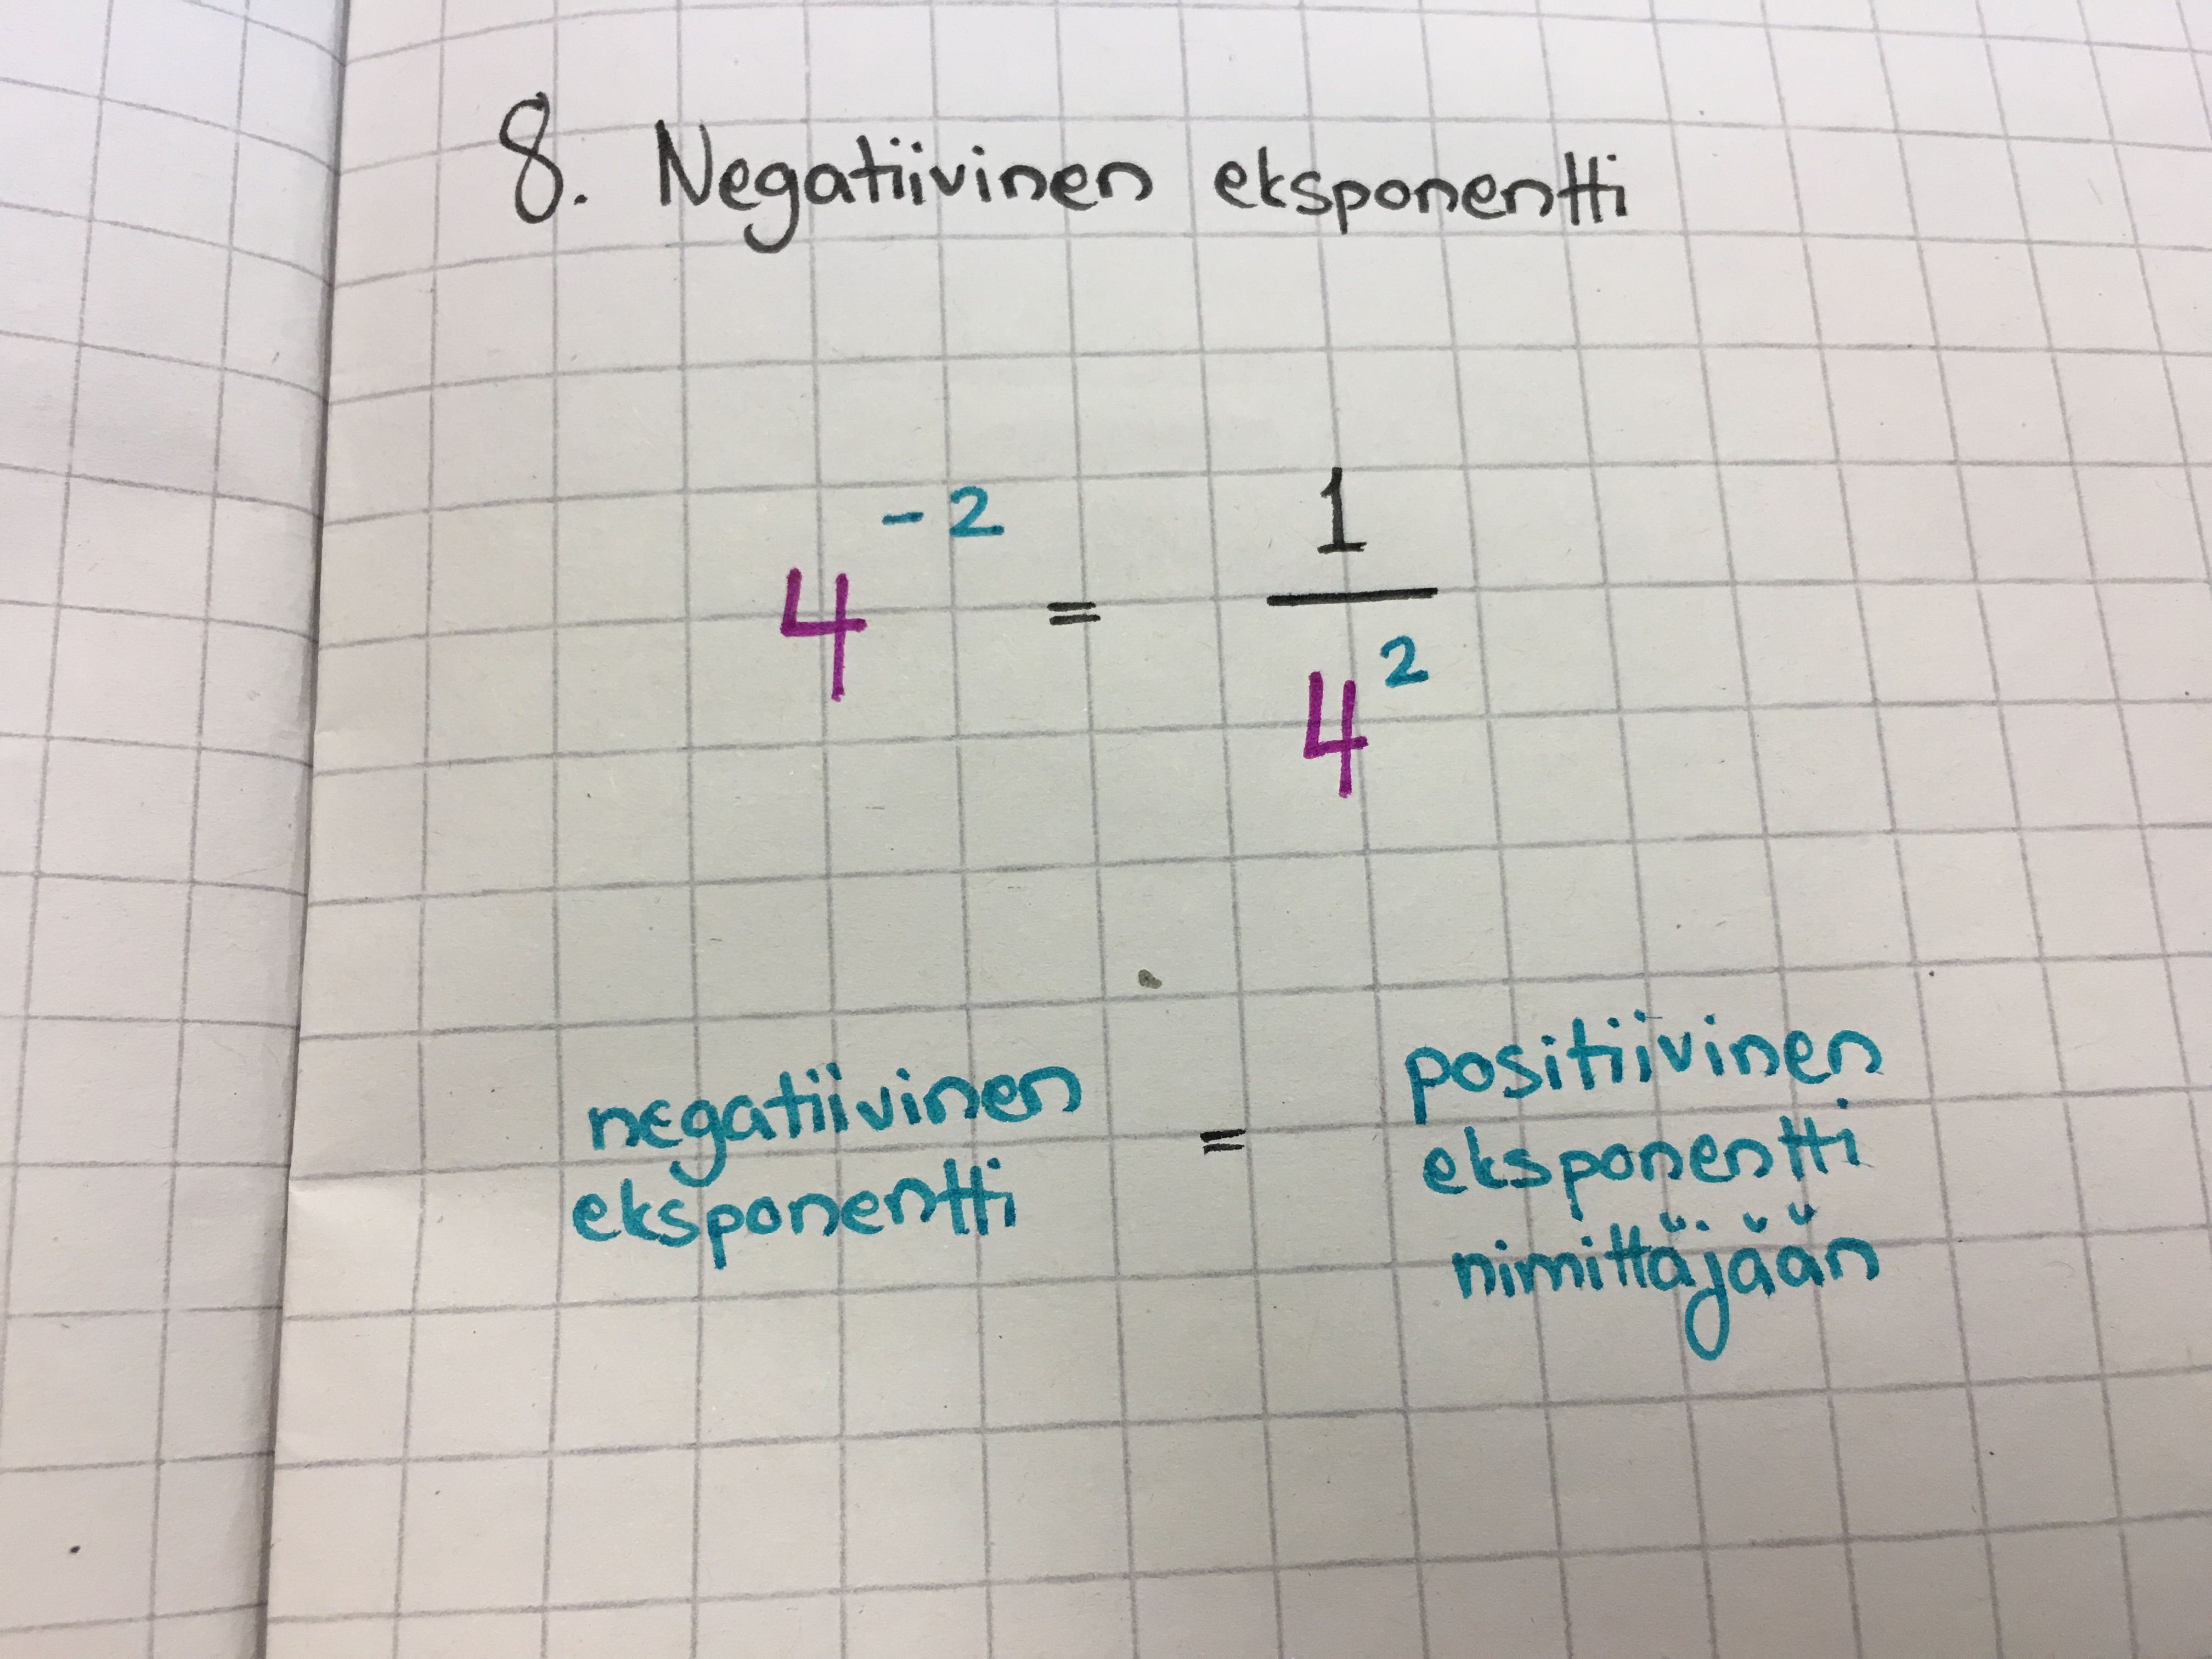 8. Negatiivinen eksponentti
4⁻² = 1/4²
negatiivinen
eksponentti
=
positiivinen
eksponentti
nimittäjään